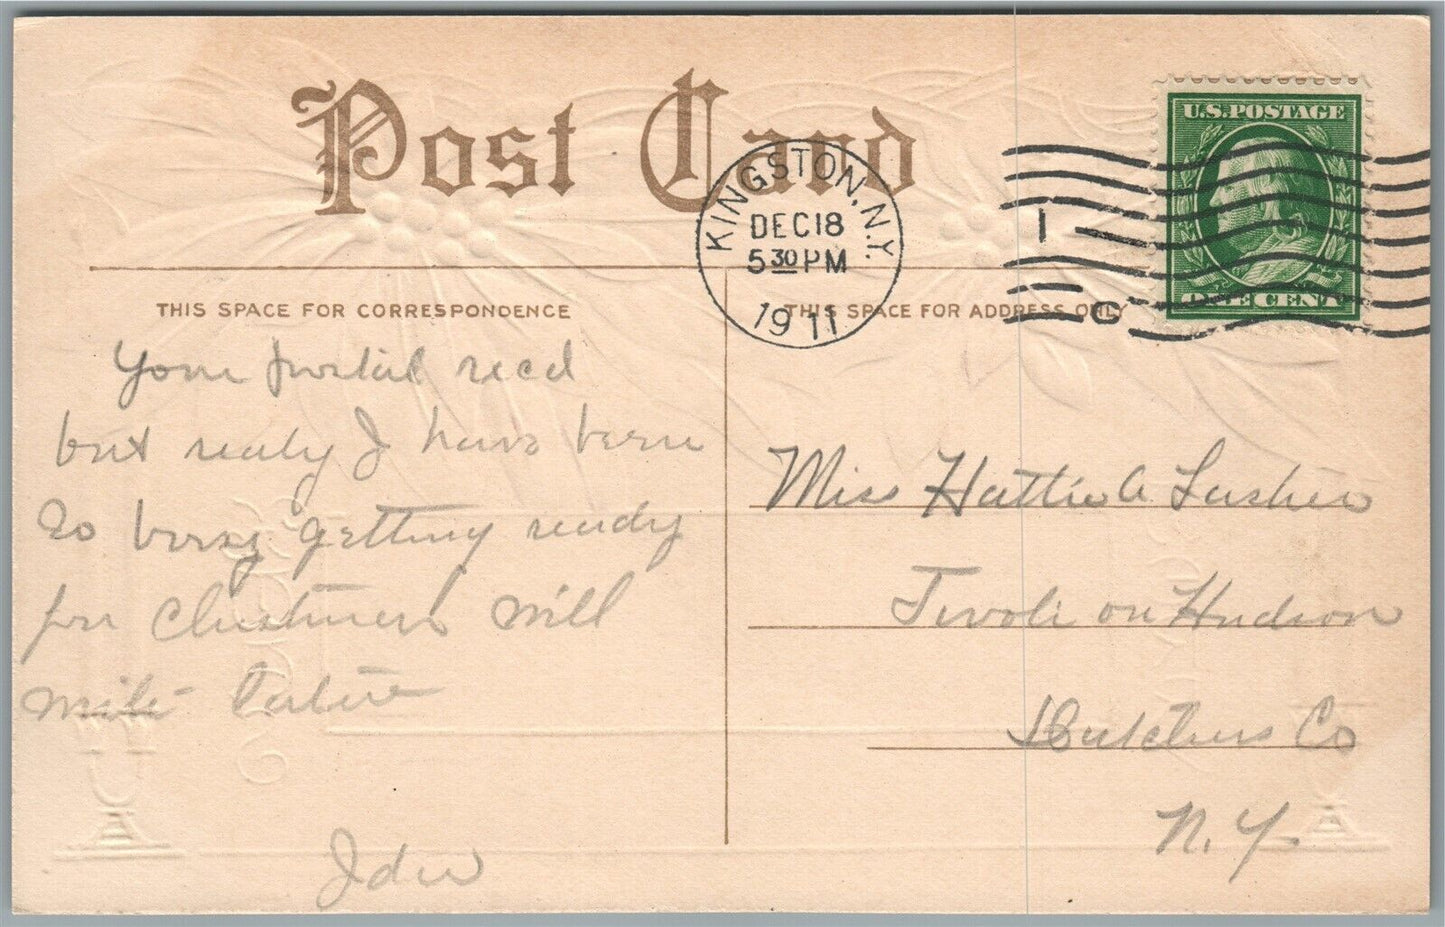 Post Card
U.S. POSTAGE
KINGSTON, N.Y.
DEC 18
5 30 PM
1911
1
C
ONE CENT
THIS SPACE FOR CORRESPONDENCE
THIS SPACE FOR ADDRESS ONLY
Your postal recd
but realy I have been
so busy getting ready
for Christmas will
write later
Ida
Miss Hattie A Lasher
Tivoli on Hudson
Dutchess Co
N.Y.